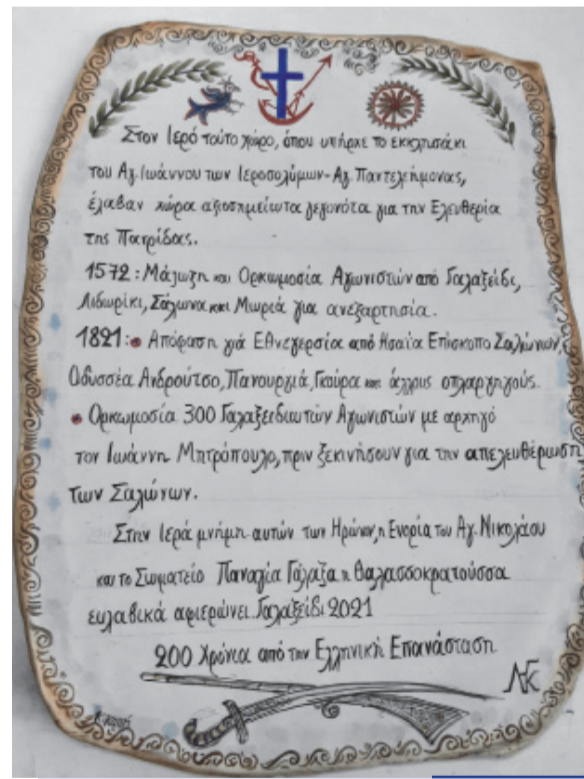 Στον Ιερό τούτο χώρο, όπου υπήρχε το εκκλησάκι
του Αγ. Ιωάννου των Ιεροσολύμων-Αγ. Παντελεήμονας,
έλαβαν χώρα αξιοσημείωτα γεγονότα για την Ελευθερία
της Πατρίδας.
1572: Μάζωξη και Ορκωμοσία Αγωνιστών από Γαλαξείδι,
Λιδωρίκι, Σάλωνα και Μωριά για ανεξαρτησία.
1821: • Απόφαση γιά Εθνεγερσία από Ησαΐα Επίσκοπο Σαλώνων,
Οδυσσέα Ανδρούτσο, Πανουργιά, Γκούρα και άλλους οπλαρχηγούς.
• Ορκωμοσία 300 Γαλαξειδιωτών Αγωνιστών με αρχηγό
τον Ιωάννη Μητρόπουλο, πριν ξεκινήσουν για την απελευθέρωση
των Σαλώνων.
Στην Ιερά μνήμη αυτών των Ηρώων, η Ενορία του Αγ. Νικολάου
και το Σωματείο Παναγία Γάλαζα η Θαλασσοκρατούσσα
ευλαβικά αφιερώνει. Γαλαξείδι 2021
200 Χρόνια από την Ελληνική Επανάσταση